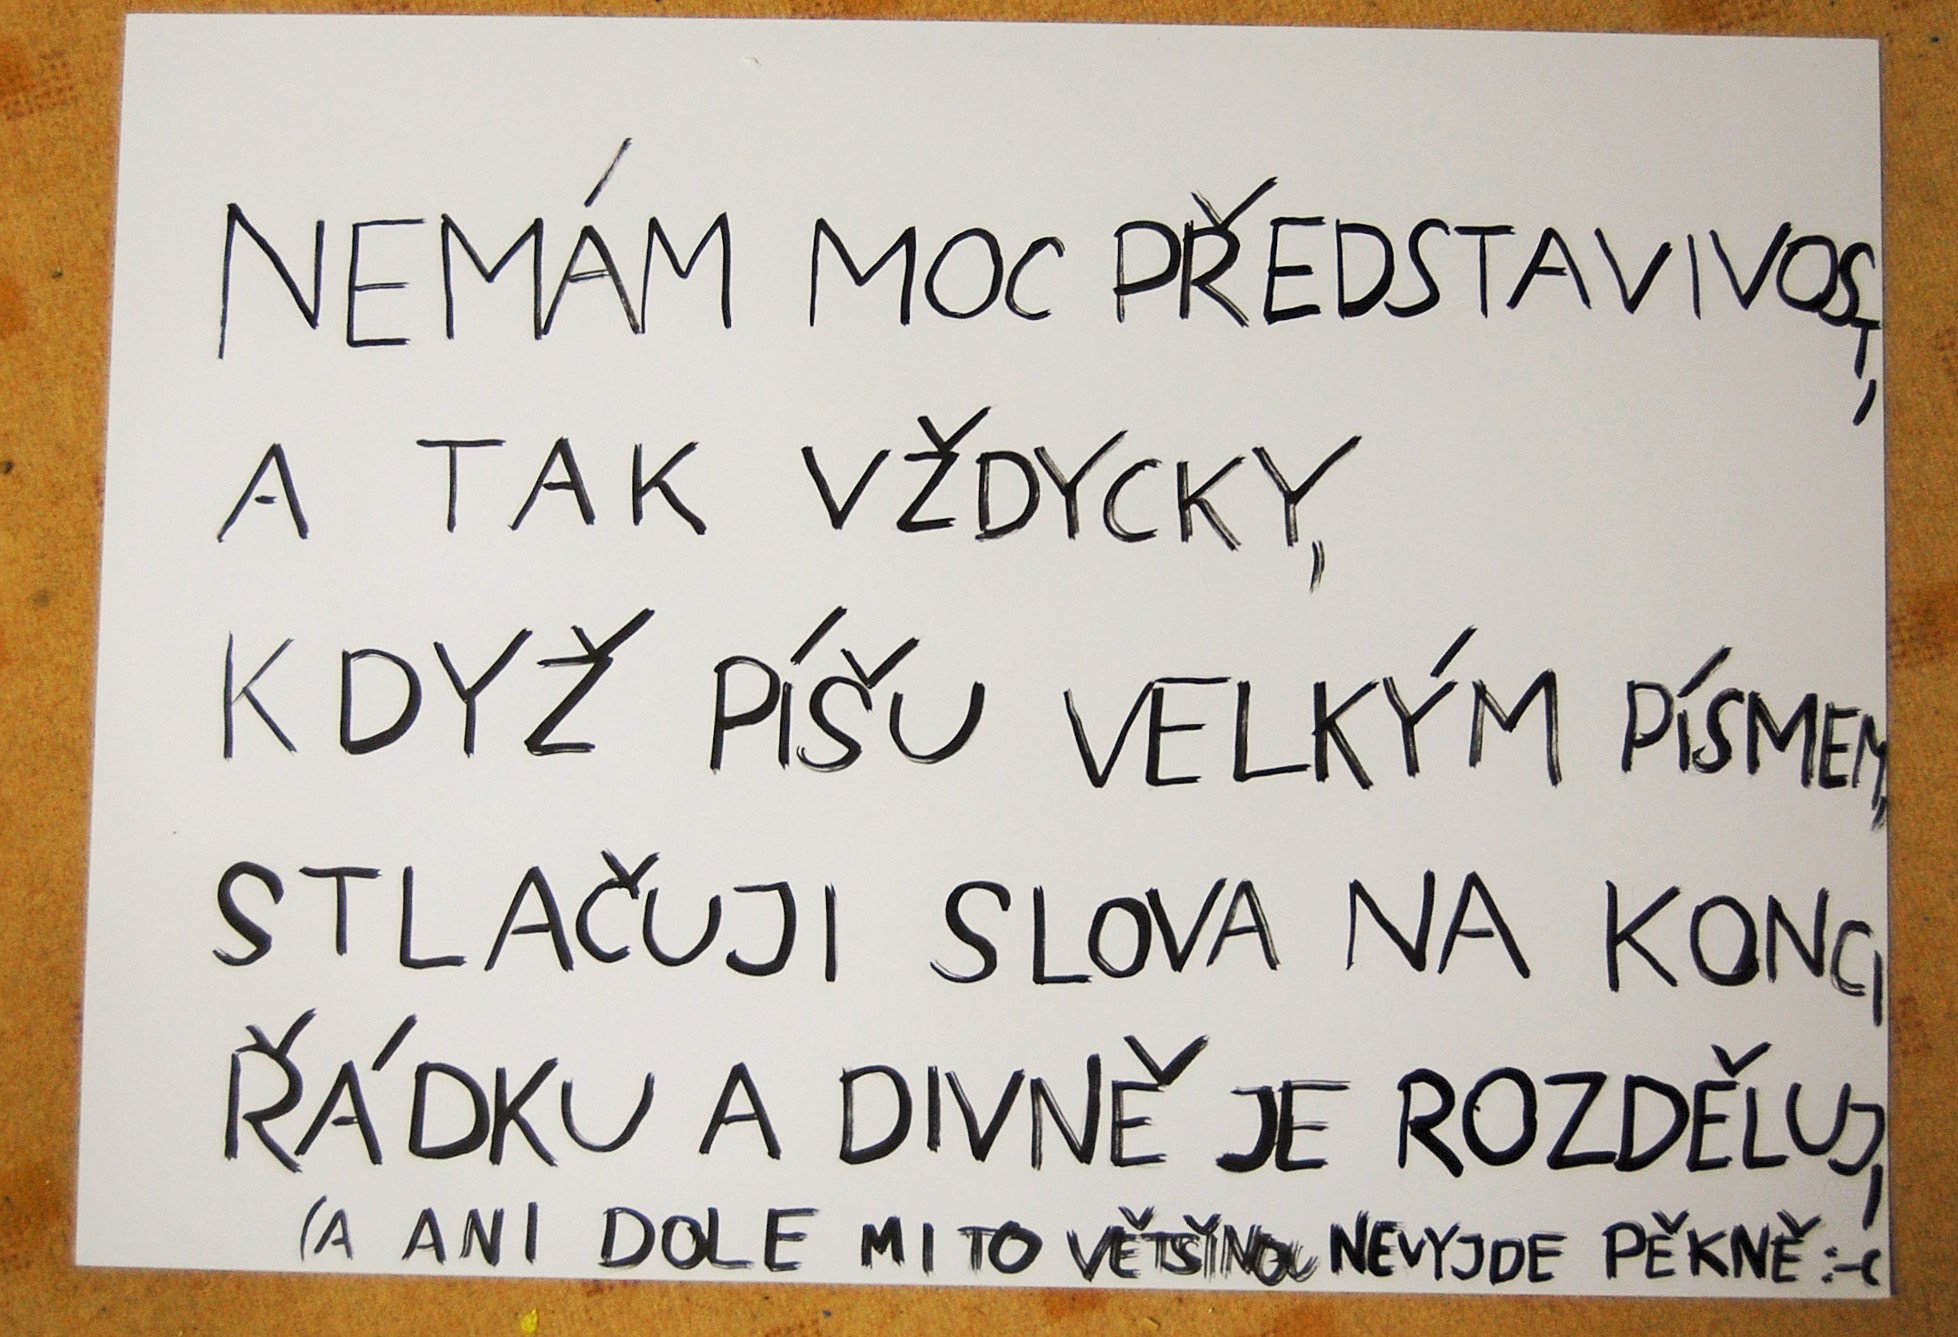 NEMÁM MOC PŘEDSTAVIVOST,
A TAK VŽDYCKY,
KDYŽ PÍŠU VELKÝM PÍSMEM,
STLAČUJI SLOVA NA KONCI
ŘÁDKU A DIVNĚ JE ROZDĚLUJI
(A ANI DOLE MI TO VĚTŠINOU NEVYJDE PĚKNĚ :-(